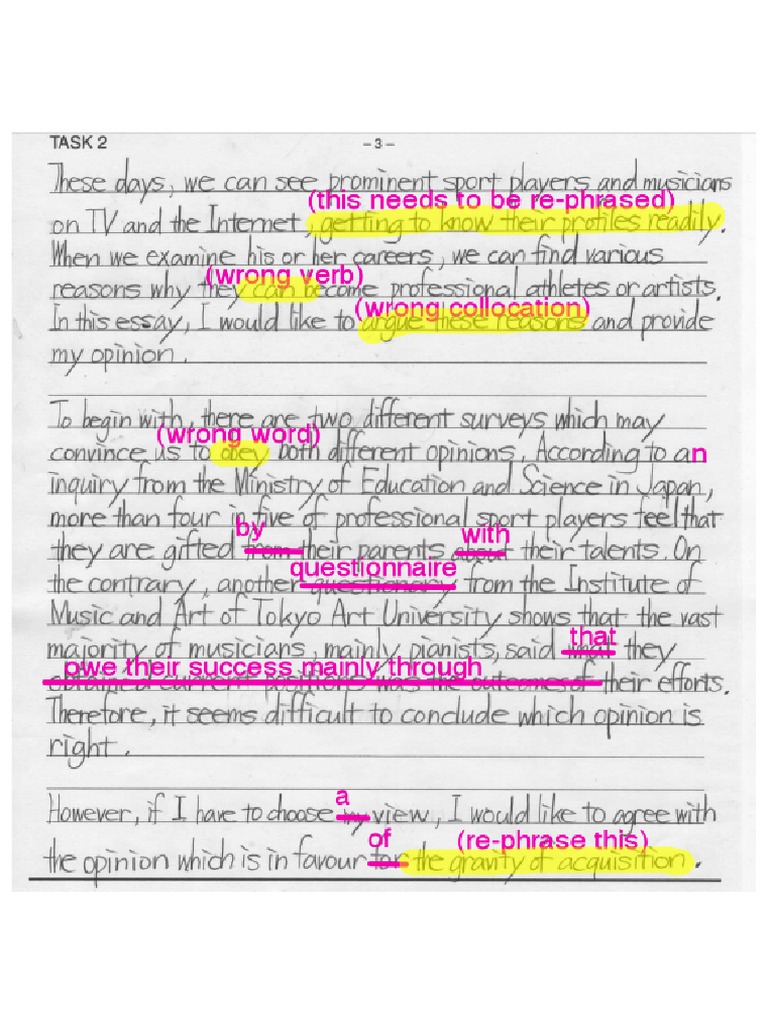 TASK 2
– 3 –
These days, we can see prominent sport players and musicians
(this needs to be re-phrased)
on TV and the Internet, getting to know their profiles readily.
When we examine his or her careers, we can find various
(wrong verb)
reasons why they can become professional athletes or artists.
(wrong collocation)
In this essay, I would like to argue these reasons and provide
my opinion.
To begin with, there are two different surveys which may
(wrong word)
convince us to obey both different opinions. According to an
inquiry from the Ministry of Education and Science in Japan,
more than four in five of professional sport players feel that
by with
they are gifted from their parents about their talents. On
questionnaire
the contrary, another questionary from the Institute of
Music and Art of Tokyo Art University shows that the vast
that
majority of musicians, mainly pianists, said what they
pwe their success mainly through
obtained current positions was the outcomes of their efforts.
Therefore, it seems difficult to conclude which opinion is
right.
a
However, if I have to choose my view, I would like to agree with
of (re-phrase this)
the opinion which is in favour for the gravity of acquisition.